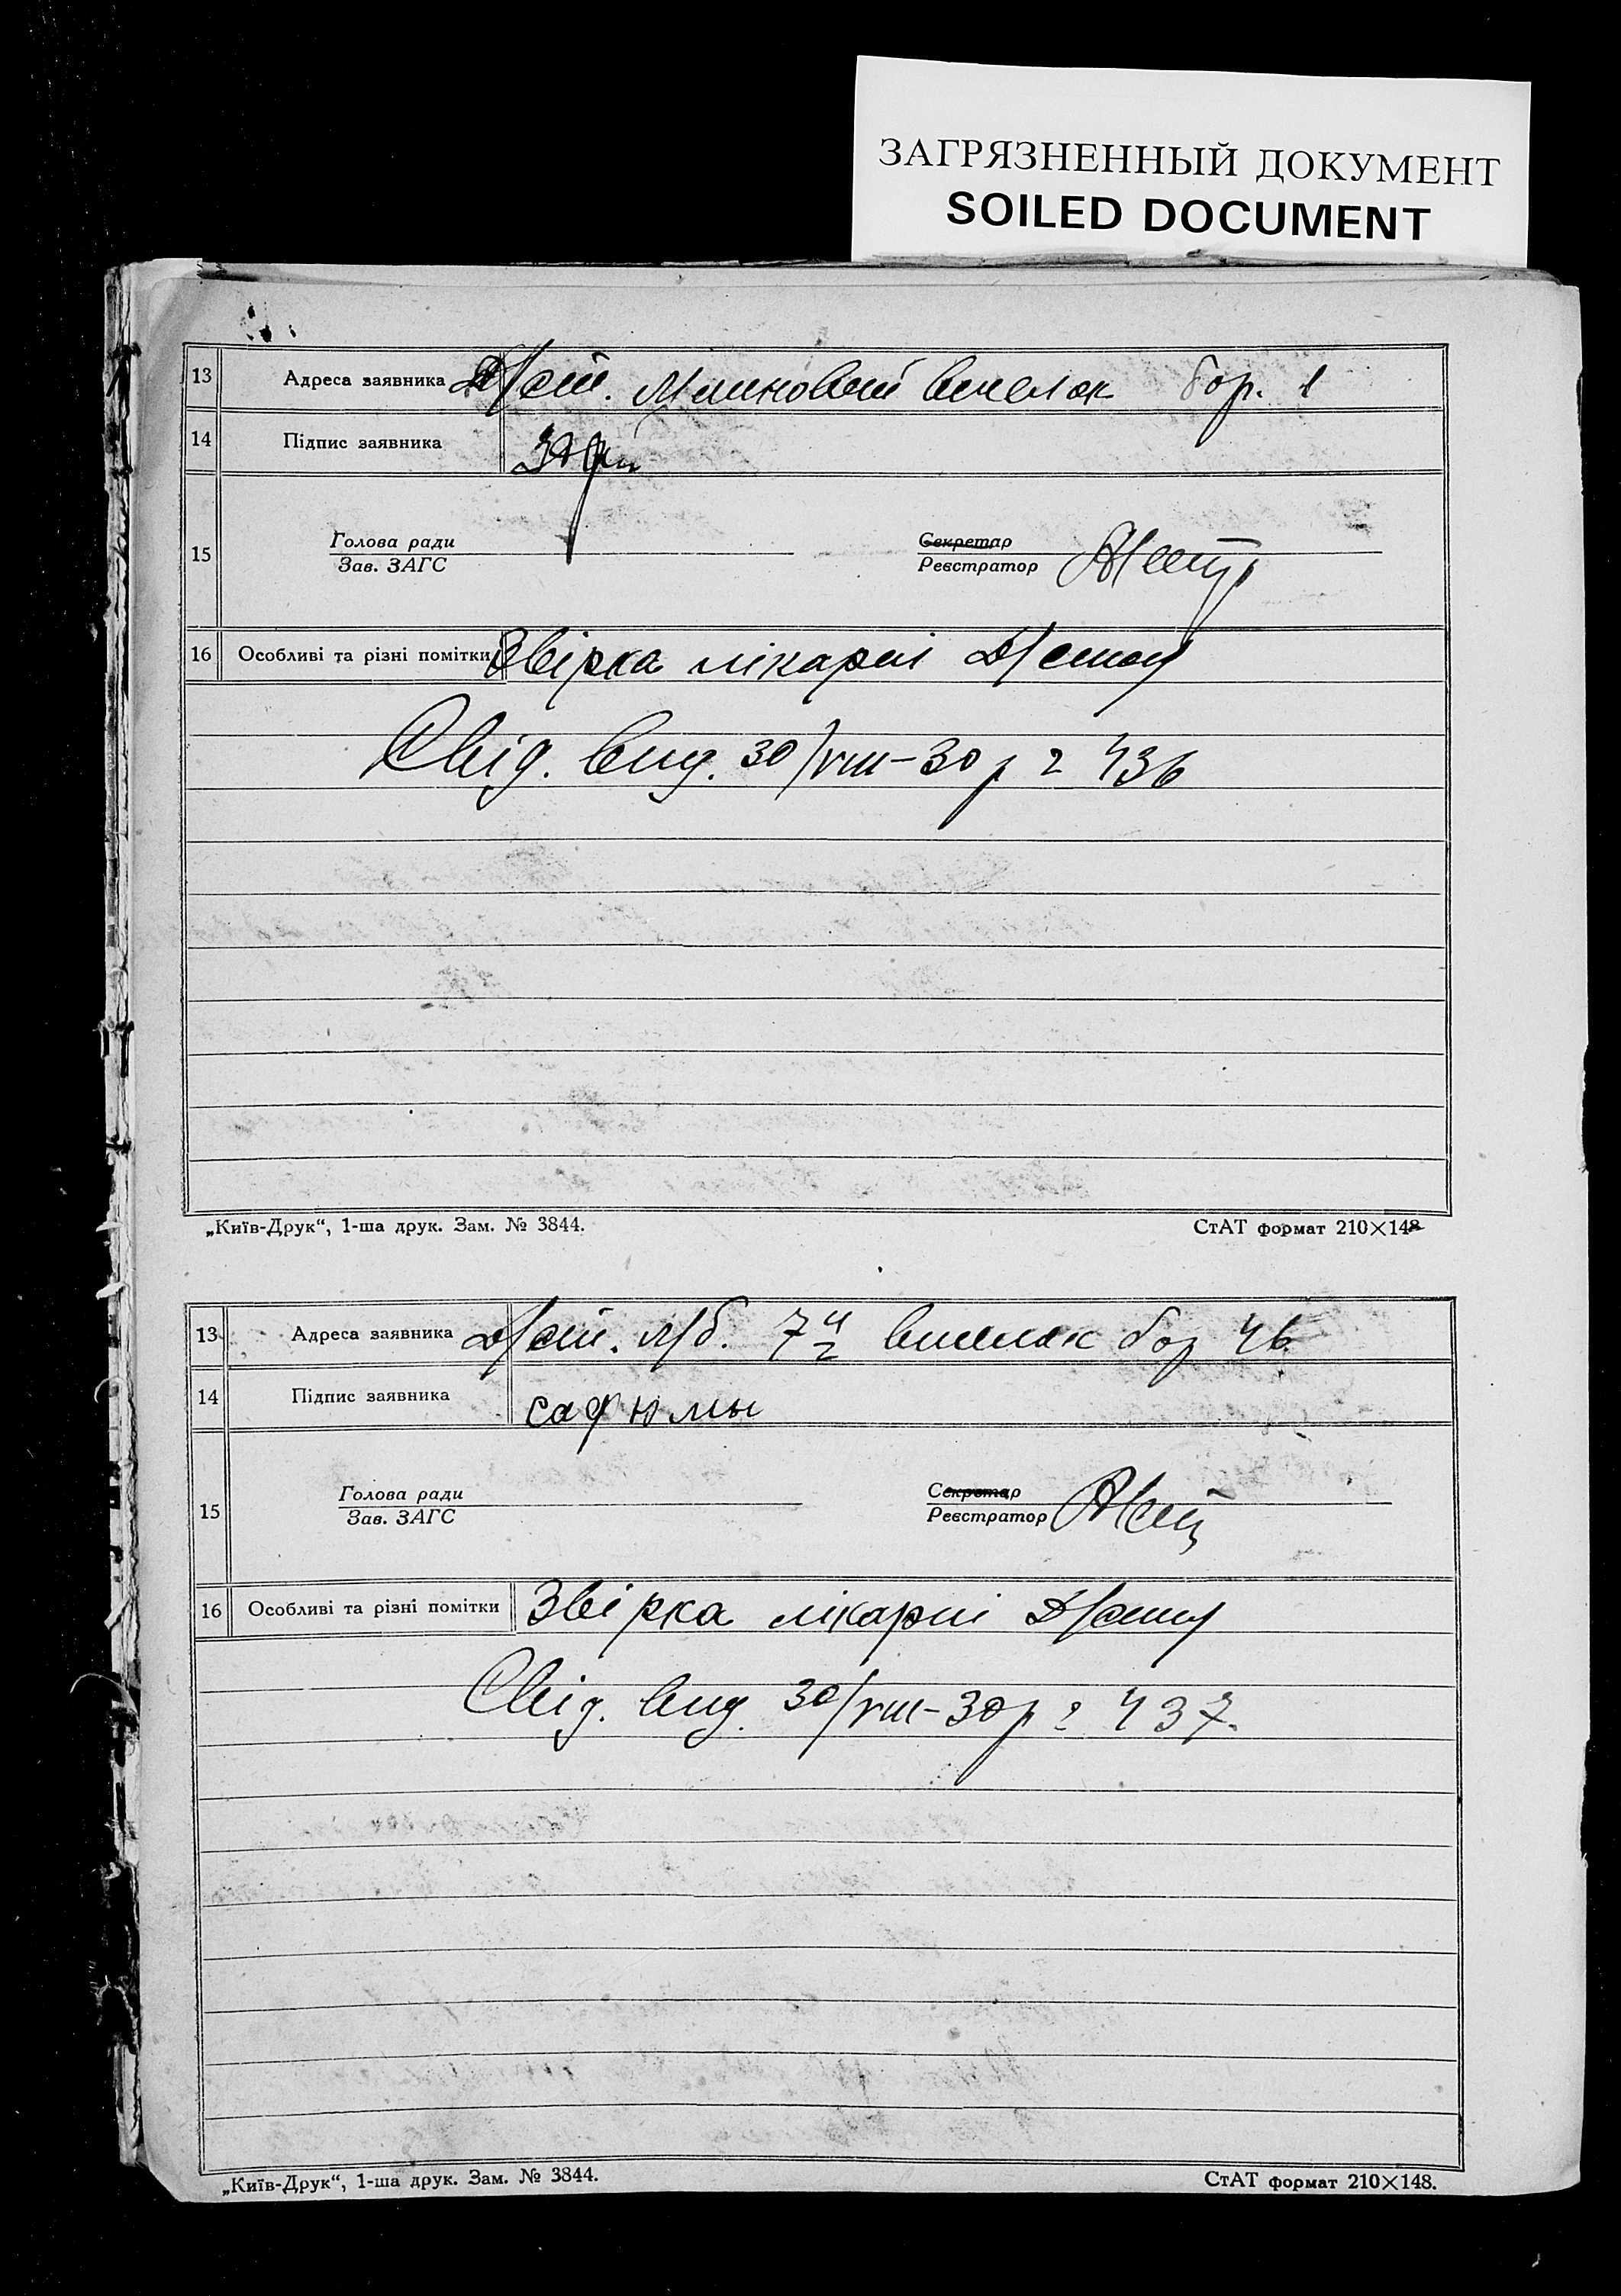 ЗАГРЯЗНЕННЫЙ ДОКУМЕНТ
SOILED DOCUMENT
13 Адреса заявника бор. 1
14 Підпис заявника
Голова ради Секретар
15
Зав. ЗАГС Реєстратор
16 Особливі та різні помітки Звірка лікарні
Свід. вид. 30/VIII-30 р 436
„Київ-Друк“, 1-ша друк. Зам. № 3844. СтАТ формат 210×148
13 Адреса заявника бор 46
14 Підпис заявника
Голова ради Секретар
15
Зав. ЗАГС Реєстратор
16 Особливі та різні помітки Звірка лікарні
Свід. вид. 30/VIII-30 р 437.
„Київ-Друк“, 1-ша друк. Зам. № 3844. СтАТ формат 210×148.